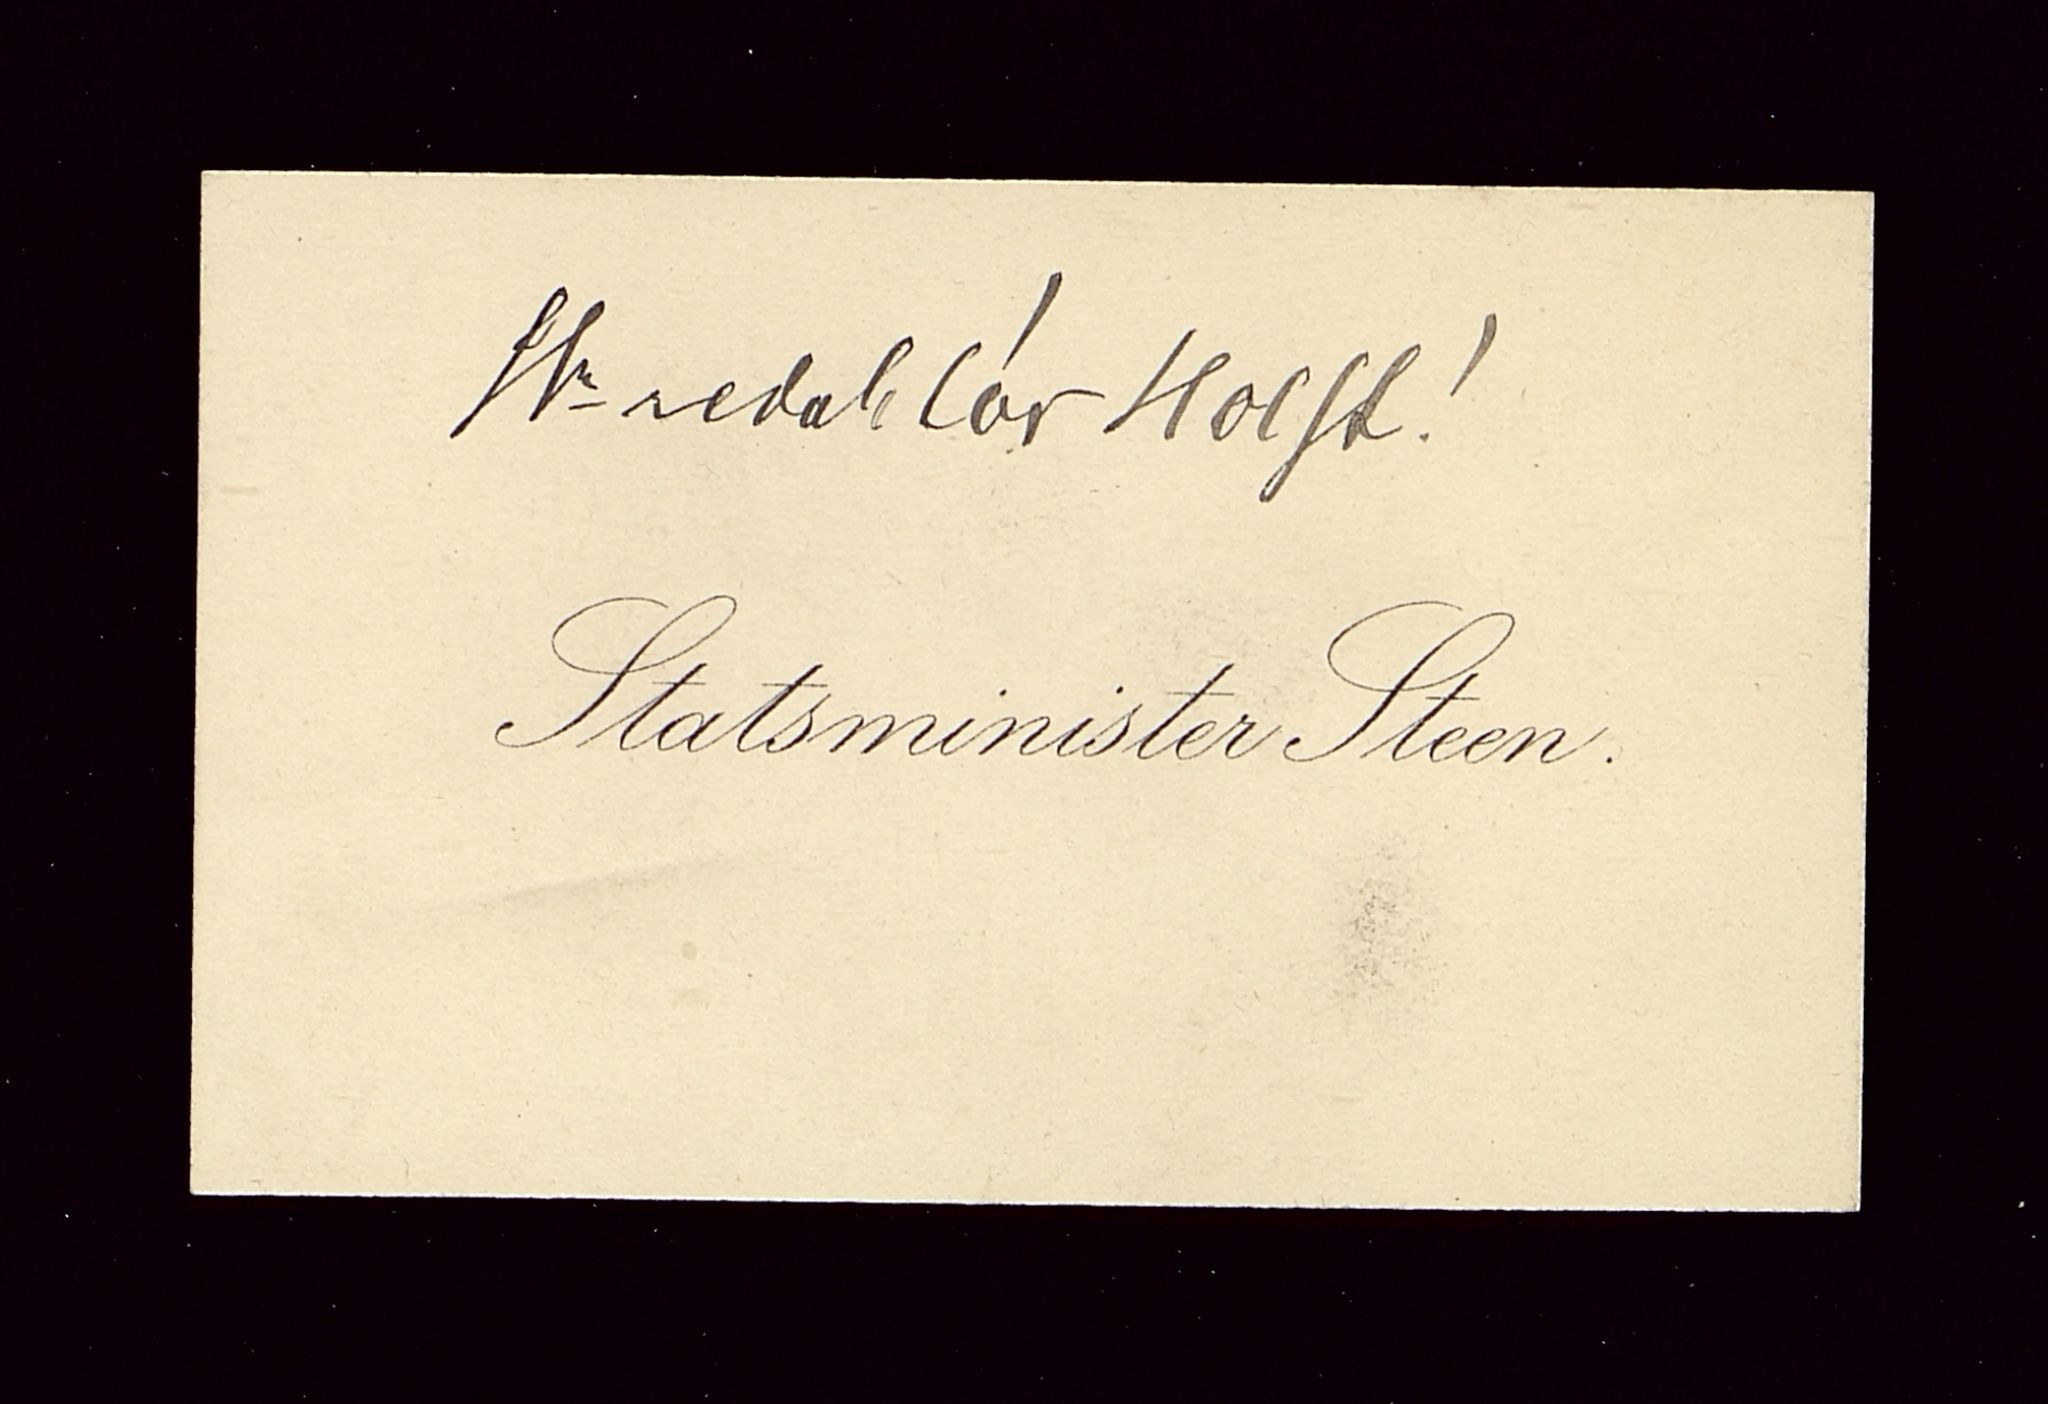 Hr redaktør Holst!
Statsminister Steen.